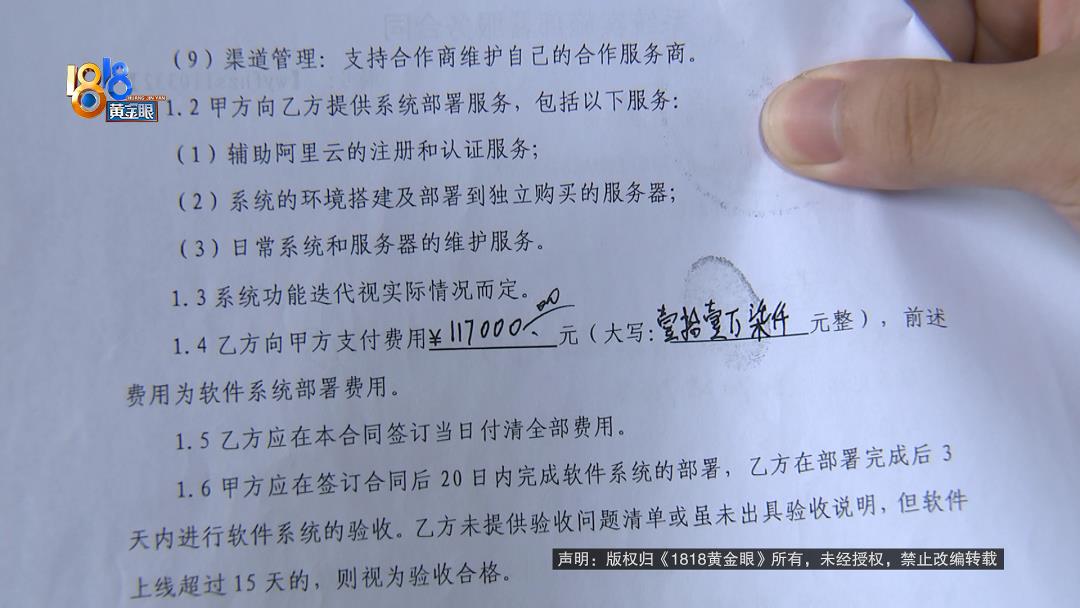 (9)渠道管理：支持合作商维护自己的合作服务商。
1818
HUANG JIN YAN
黄金眼
1.2 甲方向乙方提供系统部署服务，包括以下服务：
(1)辅助阿里云的注册和认证服务；
(2)系统的环境搭建及部署到独立购买的服务器；
(3)日常系统和服务器的维护服务。
1.3 系统功能迭代视实际情况而定。
1.4 乙方向甲方支付费用¥117000.00元（大写：壹拾壹万柒仟元整），前述
费用为软件系统部署费用。
1.5 乙方应在本合同签订当日付清全部费用。
1.6 甲方应在签订合同后 20 日内完成软件系统的部署，乙方在部署完成后 3
天内进行软件系统的验收。乙方未提供验收问题清单或虽未出具验收说明，但软件
上线超过 15 天的，则视为验收合格。
声明：版权归《1818黄金眼》所有，未经授权，禁止改编转载